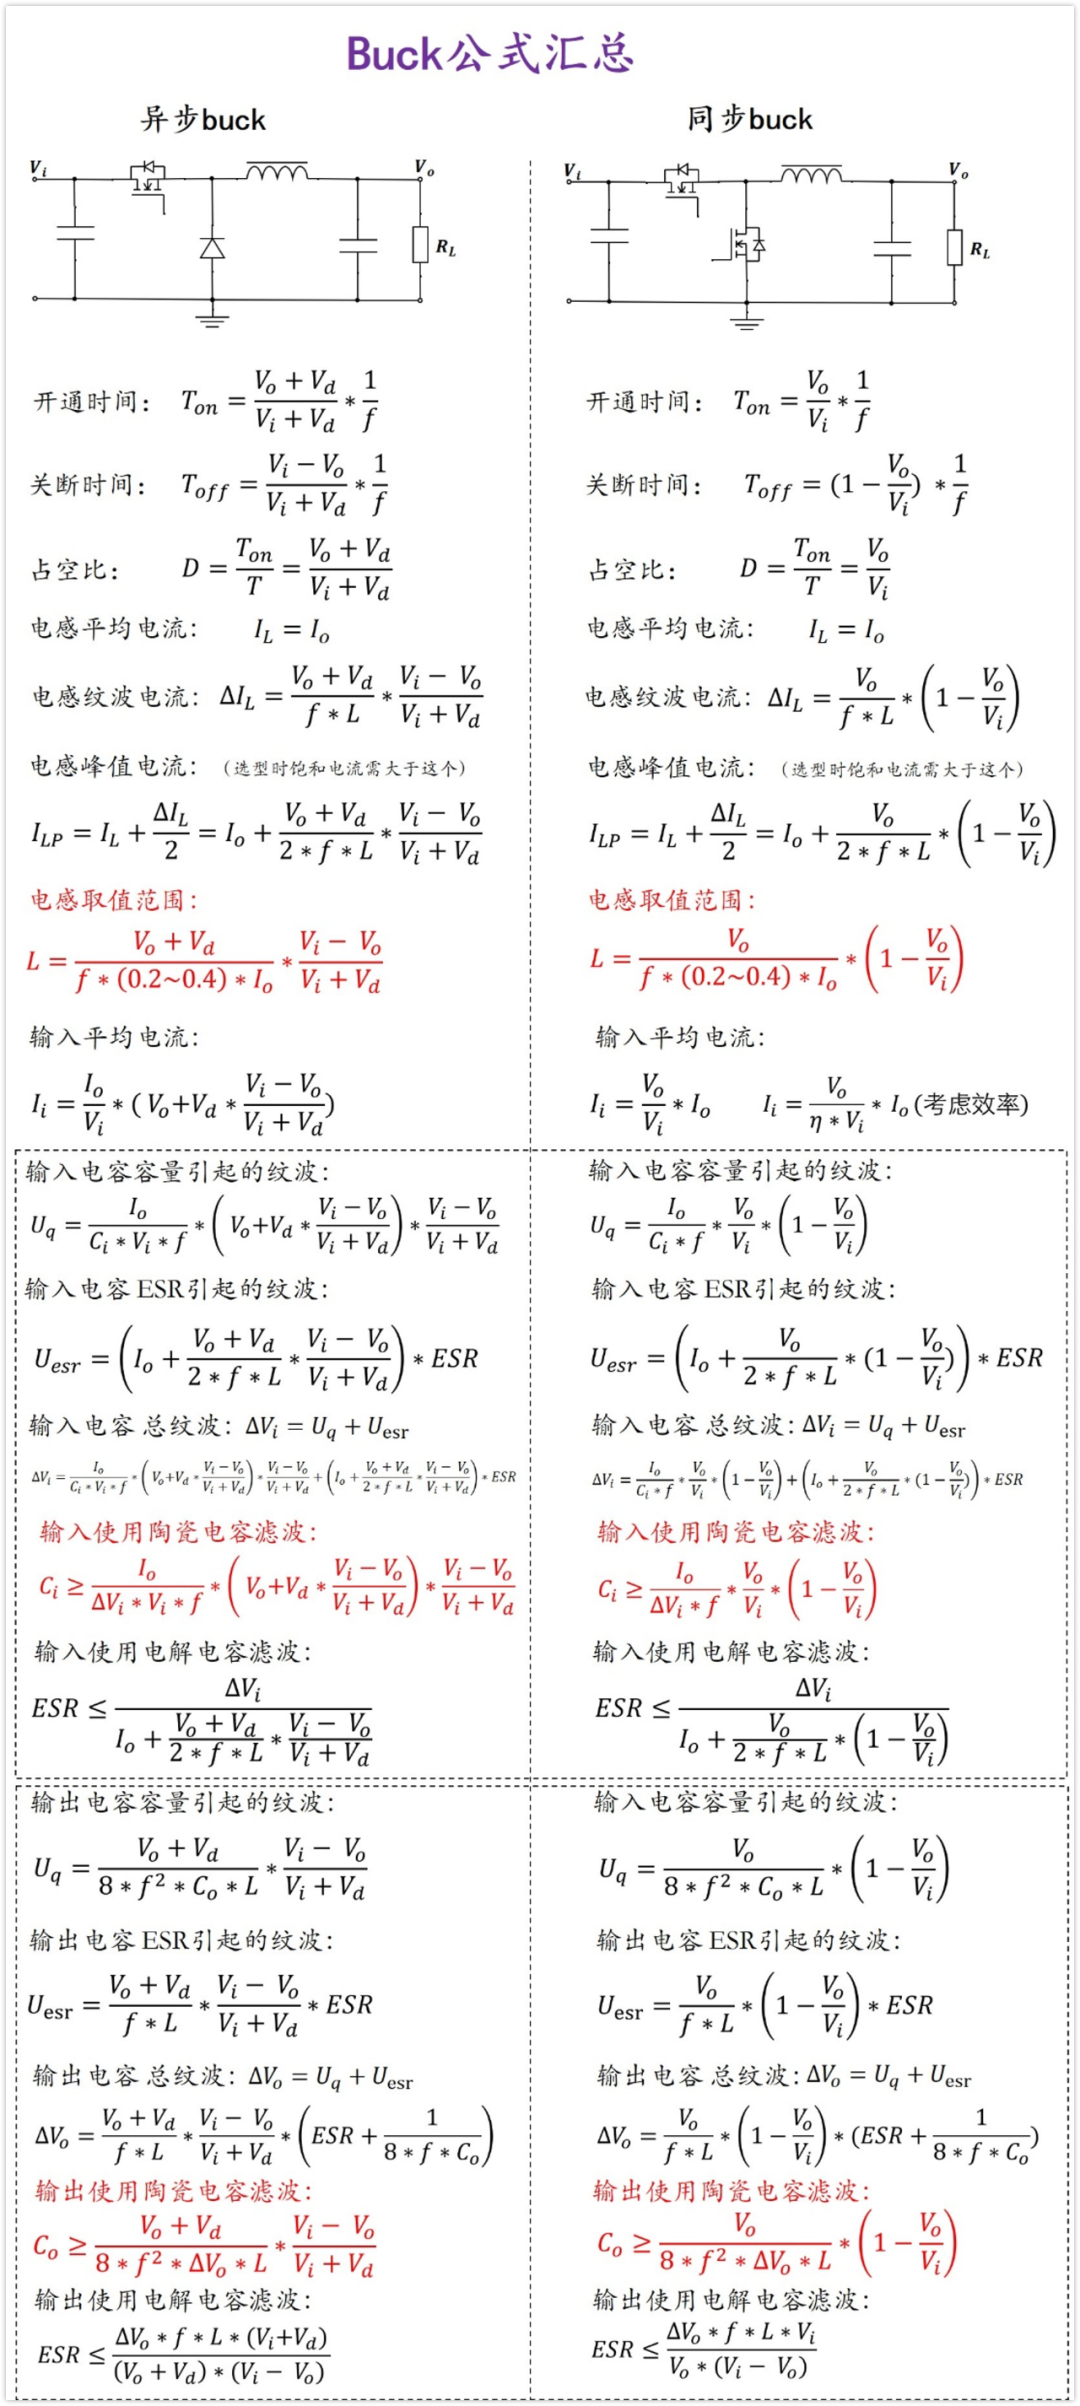 Buck公式汇总
异步buck
V_i
V_o
R_L
开通时间： T_on = (V_o + V_d)/(V_i + V_d) * 1/f
关断时间： T_off = (V_i − V_o)/(V_i + V_d) * 1/f
占空比： D = T_on/T = (V_o + V_d)/(V_i + V_d)
电感平均电流： I_L = I_o
电感纹波电流： ΔI_L = (V_o + V_d)/(f * L) * (V_i − V_o)/(V_i + V_d)
电感峰值电流： （选型时饱和电流需大于这个）
I_LP = I_L + ΔI_L/2 = I_o + (V_o + V_d)/(2 * f * L) * (V_i − V_o)/(V_i + V_d)
电感取值范围：
L = (V_o + V_d)/(f * (0.2~0.4) * I_o) * (V_i − V_o)/(V_i + V_d)
输入平均电流：
I_i = I_o/V_i * ( V_o+V_d * (V_i − V_o)/(V_i + V_d))
输入电容容量引起的纹波：
U_q = I_o/(C_i * V_i * f) * ( V_o+V_d * (V_i − V_o)/(V_i + V_d)) * (V_i − V_o)/(V_i + V_d)
输入电容 ESR引起的纹波：
U_esr = (I_o + (V_o + V_d)/(2 * f * L) * (V_i − V_o)/(V_i + V_d)) * ESR
输入电容 总纹波：ΔV_i = U_q + U_esr
ΔV_i = I_o/(C_i * V_i * f) * ( V_o+V_d * (V_i − V_o)/(V_i + V_d)) * (V_i − V_o)/(V_i + V_d) + (I_o + (V_o + V_d)/(2 * f * L) * (V_i − V_o)/(V_i + V_d)) * ESR
输入使用陶瓷电容滤波：
C_i ≥ I_o/(ΔV_i * V_i * f) * ( V_o+V_d * (V_i − V_o)/(V_i + V_d)) * (V_i − V_o)/(V_i + V_d)
输入使用电解电容滤波：
ESR ≤ ΔV_i/(I_o + (V_o + V_d)/(2 * f * L) * (V_i − V_o)/(V_i + V_d))
输出电容容量引起的纹波：
U_q = (V_o + V_d)/(8 * f² * C_o * L) * (V_i − V_o)/(V_i + V_d)
输出电容 ESR引起的纹波：
U_esr = (V_o + V_d)/(f * L) * (V_i − V_o)/(V_i + V_d) * ESR
输出电容 总纹波：ΔV_o = U_q + U_esr
ΔV_o = (V_o + V_d)/(f * L) * (V_i − V_o)/(V_i + V_d) * (ESR + 1/(8 * f * C_o))
输出使用陶瓷电容滤波：
C_o ≥ (V_o + V_d)/(8 * f² * ΔV_o * L) * (V_i − V_o)/(V_i + V_d)
输出使用电解电容滤波：
ESR ≤ (ΔV_o * f * L * (V_i+V_d))/((V_o + V_d) * (V_i − V_o))
同步buck
V_i
V_o
R_L
开通时间： T_on = V_o/V_i * 1/f
关断时间： T_off = (1 − V_o/V_i) * 1/f
占空比： D = T_on/T = V_o/V_i
电感平均电流： I_L = I_o
电感纹波电流： ΔI_L = V_o/(f * L) * (1 − V_o/V_i)
电感峰值电流： （选型时饱和电流需大于这个）
I_LP = I_L + ΔI_L/2 = I_o + V_o/(2 * f * L) * (1 − V_o/V_i)
电感取值范围：
L = V_o/(f * (0.2~0.4) * I_o) * (1 − V_o/V_i)
输入平均电流：
I_i = V_o/V_i * I_o I_i = V_o/(η * V_i) * I_o (考虑效率)
输入电容容量引起的纹波：
U_q = I_o/(C_i * f) * V_o/V_i * (1 − V_o/V_i)
输入电容 ESR引起的纹波：
U_esr = (I_o + V_o/(2 * f * L) * (1 − V_o/V_i)) * ESR
输入电容 总纹波：ΔV_i = U_q + U_esr
ΔV_i = I_o/(C_i * f) * V_o/V_i * (1 − V_o/V_i) + (I_o + V_o/(2 * f * L) * (1 − V_o/V_i)) * ESR
输入使用陶瓷电容滤波：
C_i ≥ I_o/(ΔV_i * f) * V_o/V_i * (1 − V_o/V_i)
输入使用电解电容滤波：
ESR ≤ ΔV_i/(I_o + V_o/(2 * f * L) * (1 − V_o/V_i))
输入电容容量引起的纹波：
U_q = V_o/(8 * f² * C_o * L) * (1 − V_o/V_i)
输出电容 ESR引起的纹波：
U_esr = V_o/(f * L) * (1 − V_o/V_i) * ESR
输出电容 总纹波：ΔV_o = U_q + U_esr
ΔV_o = V_o/(f * L) * (1 − V_o/V_i) * (ESR + 1/(8 * f * C_o))
输出使用陶瓷电容滤波：
C_o ≥ V_o/(8 * f² * ΔV_o * L) * (1 − V_o/V_i)
输出使用电解电容滤波：
ESR ≤ (ΔV_o * f * L * V_i)/(V_o * (V_i − V_o))